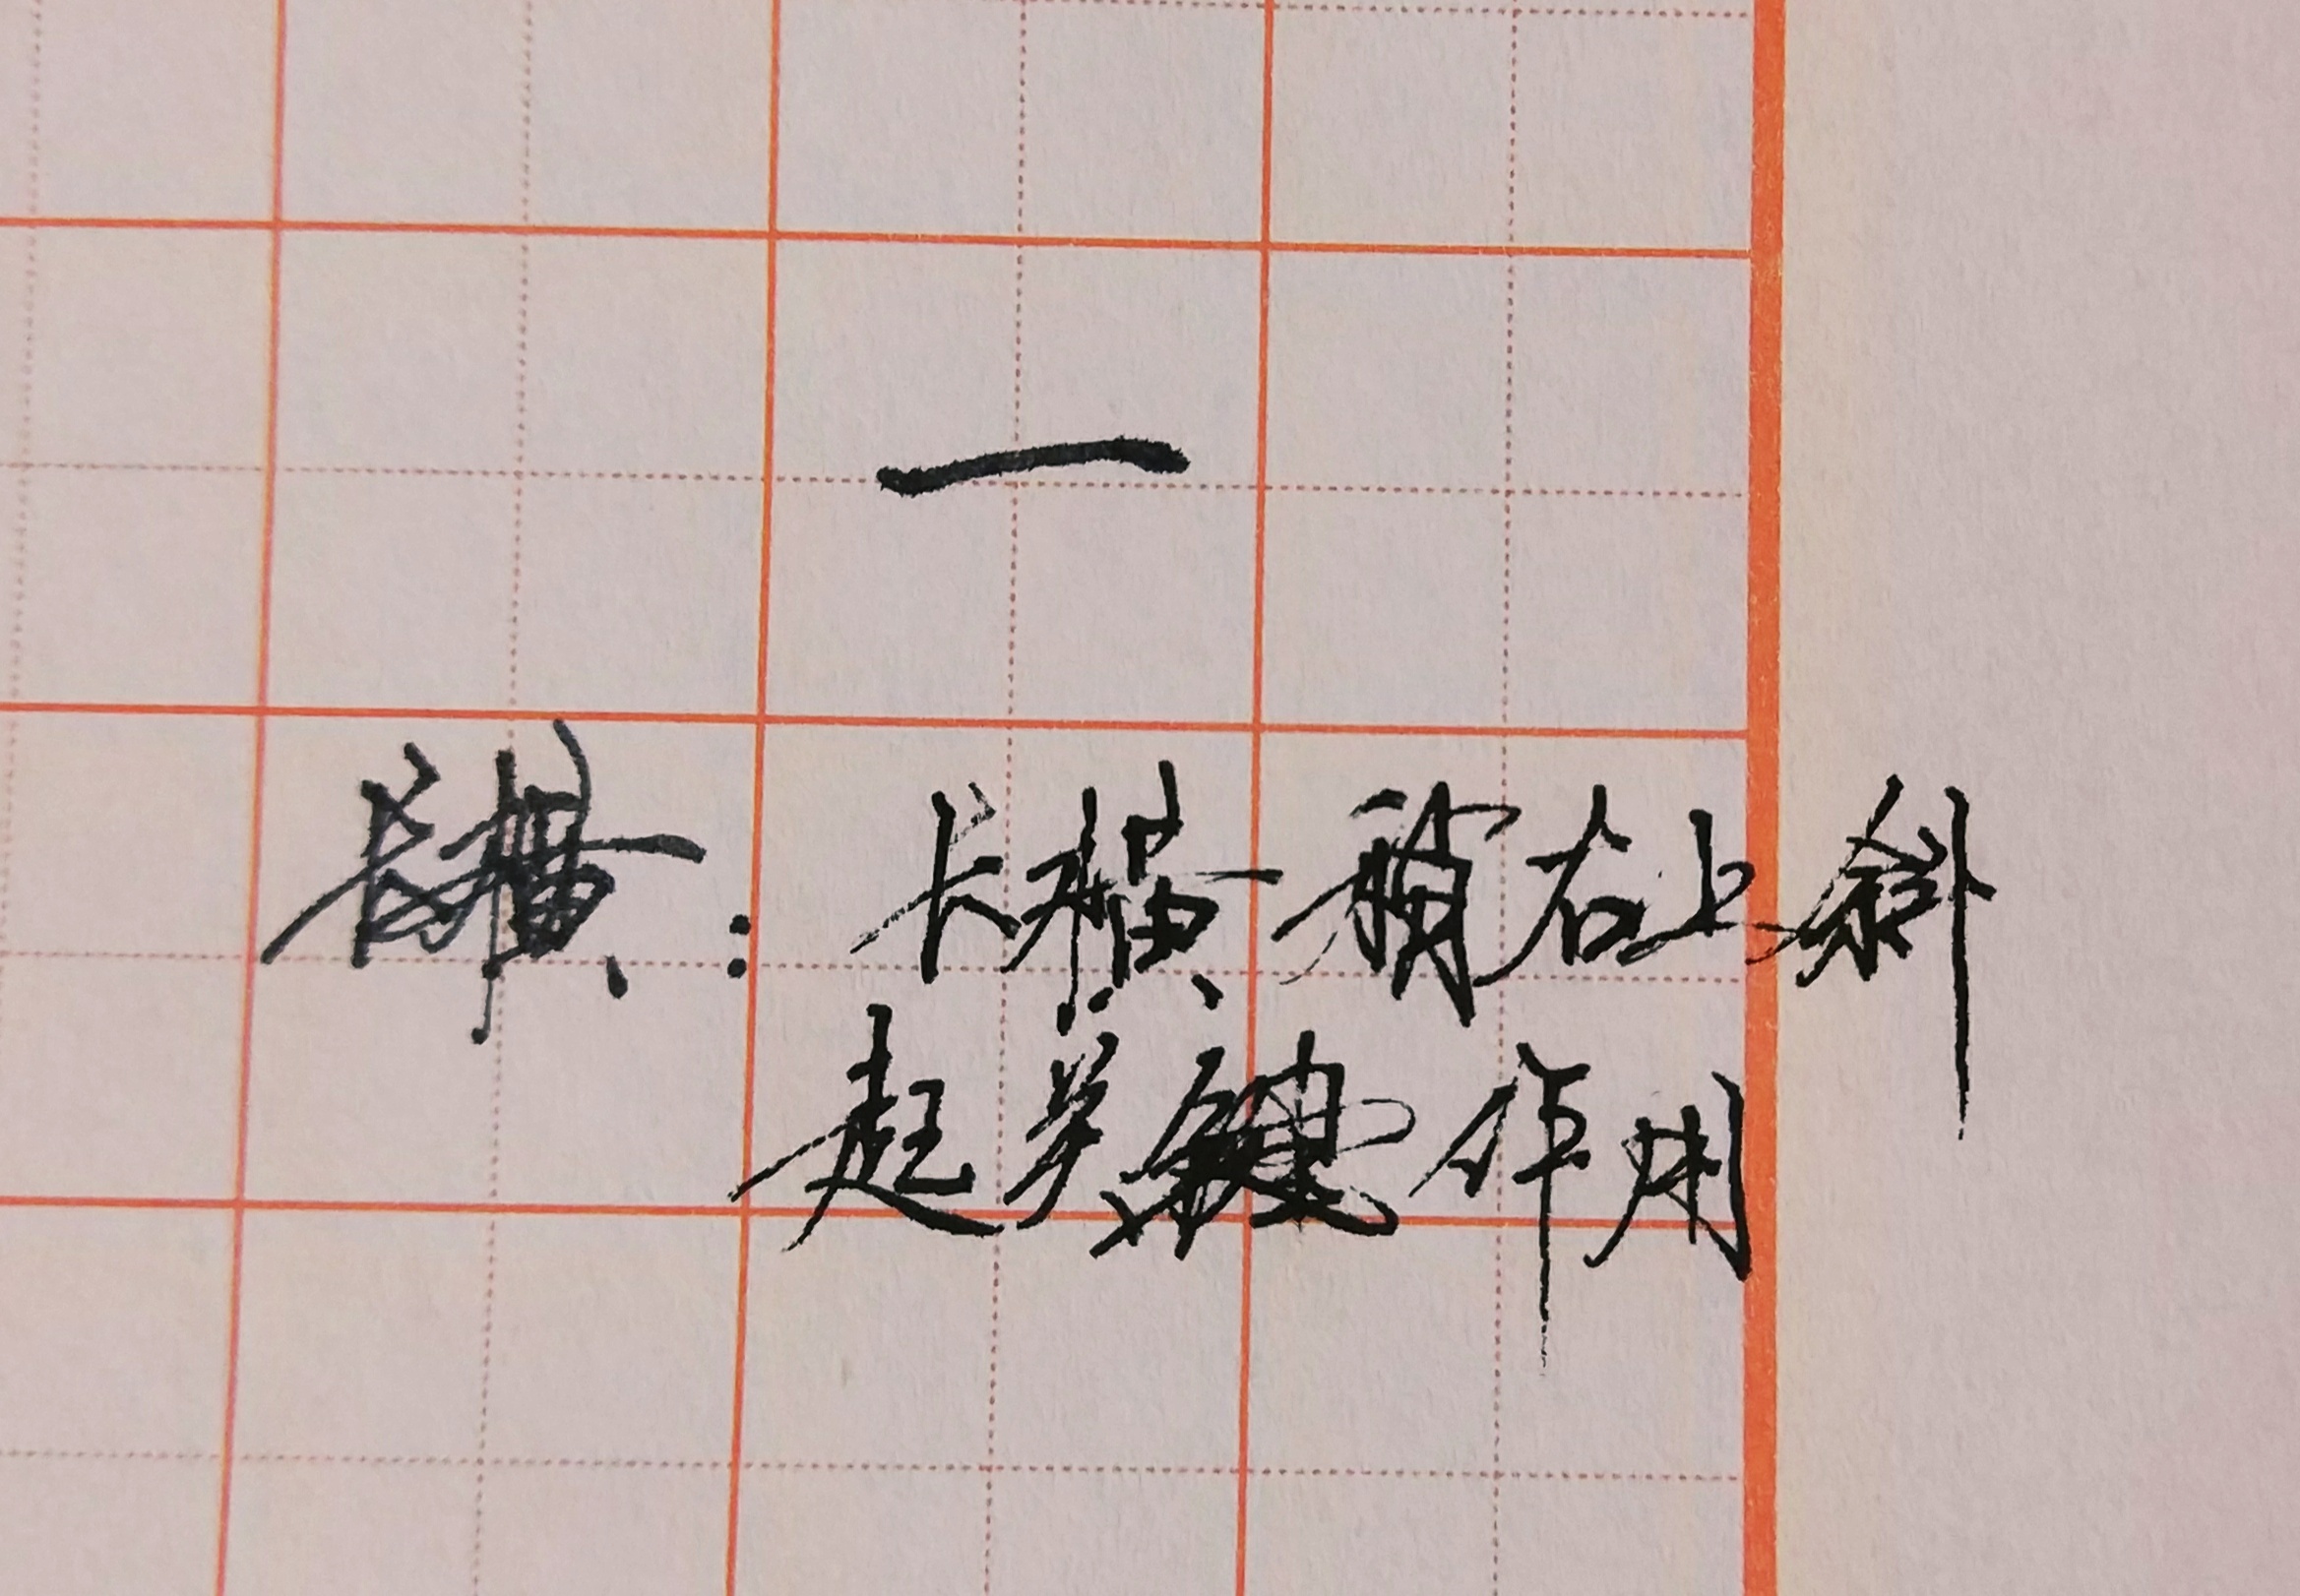 一
长横：长横稍右上斜
起关键作用